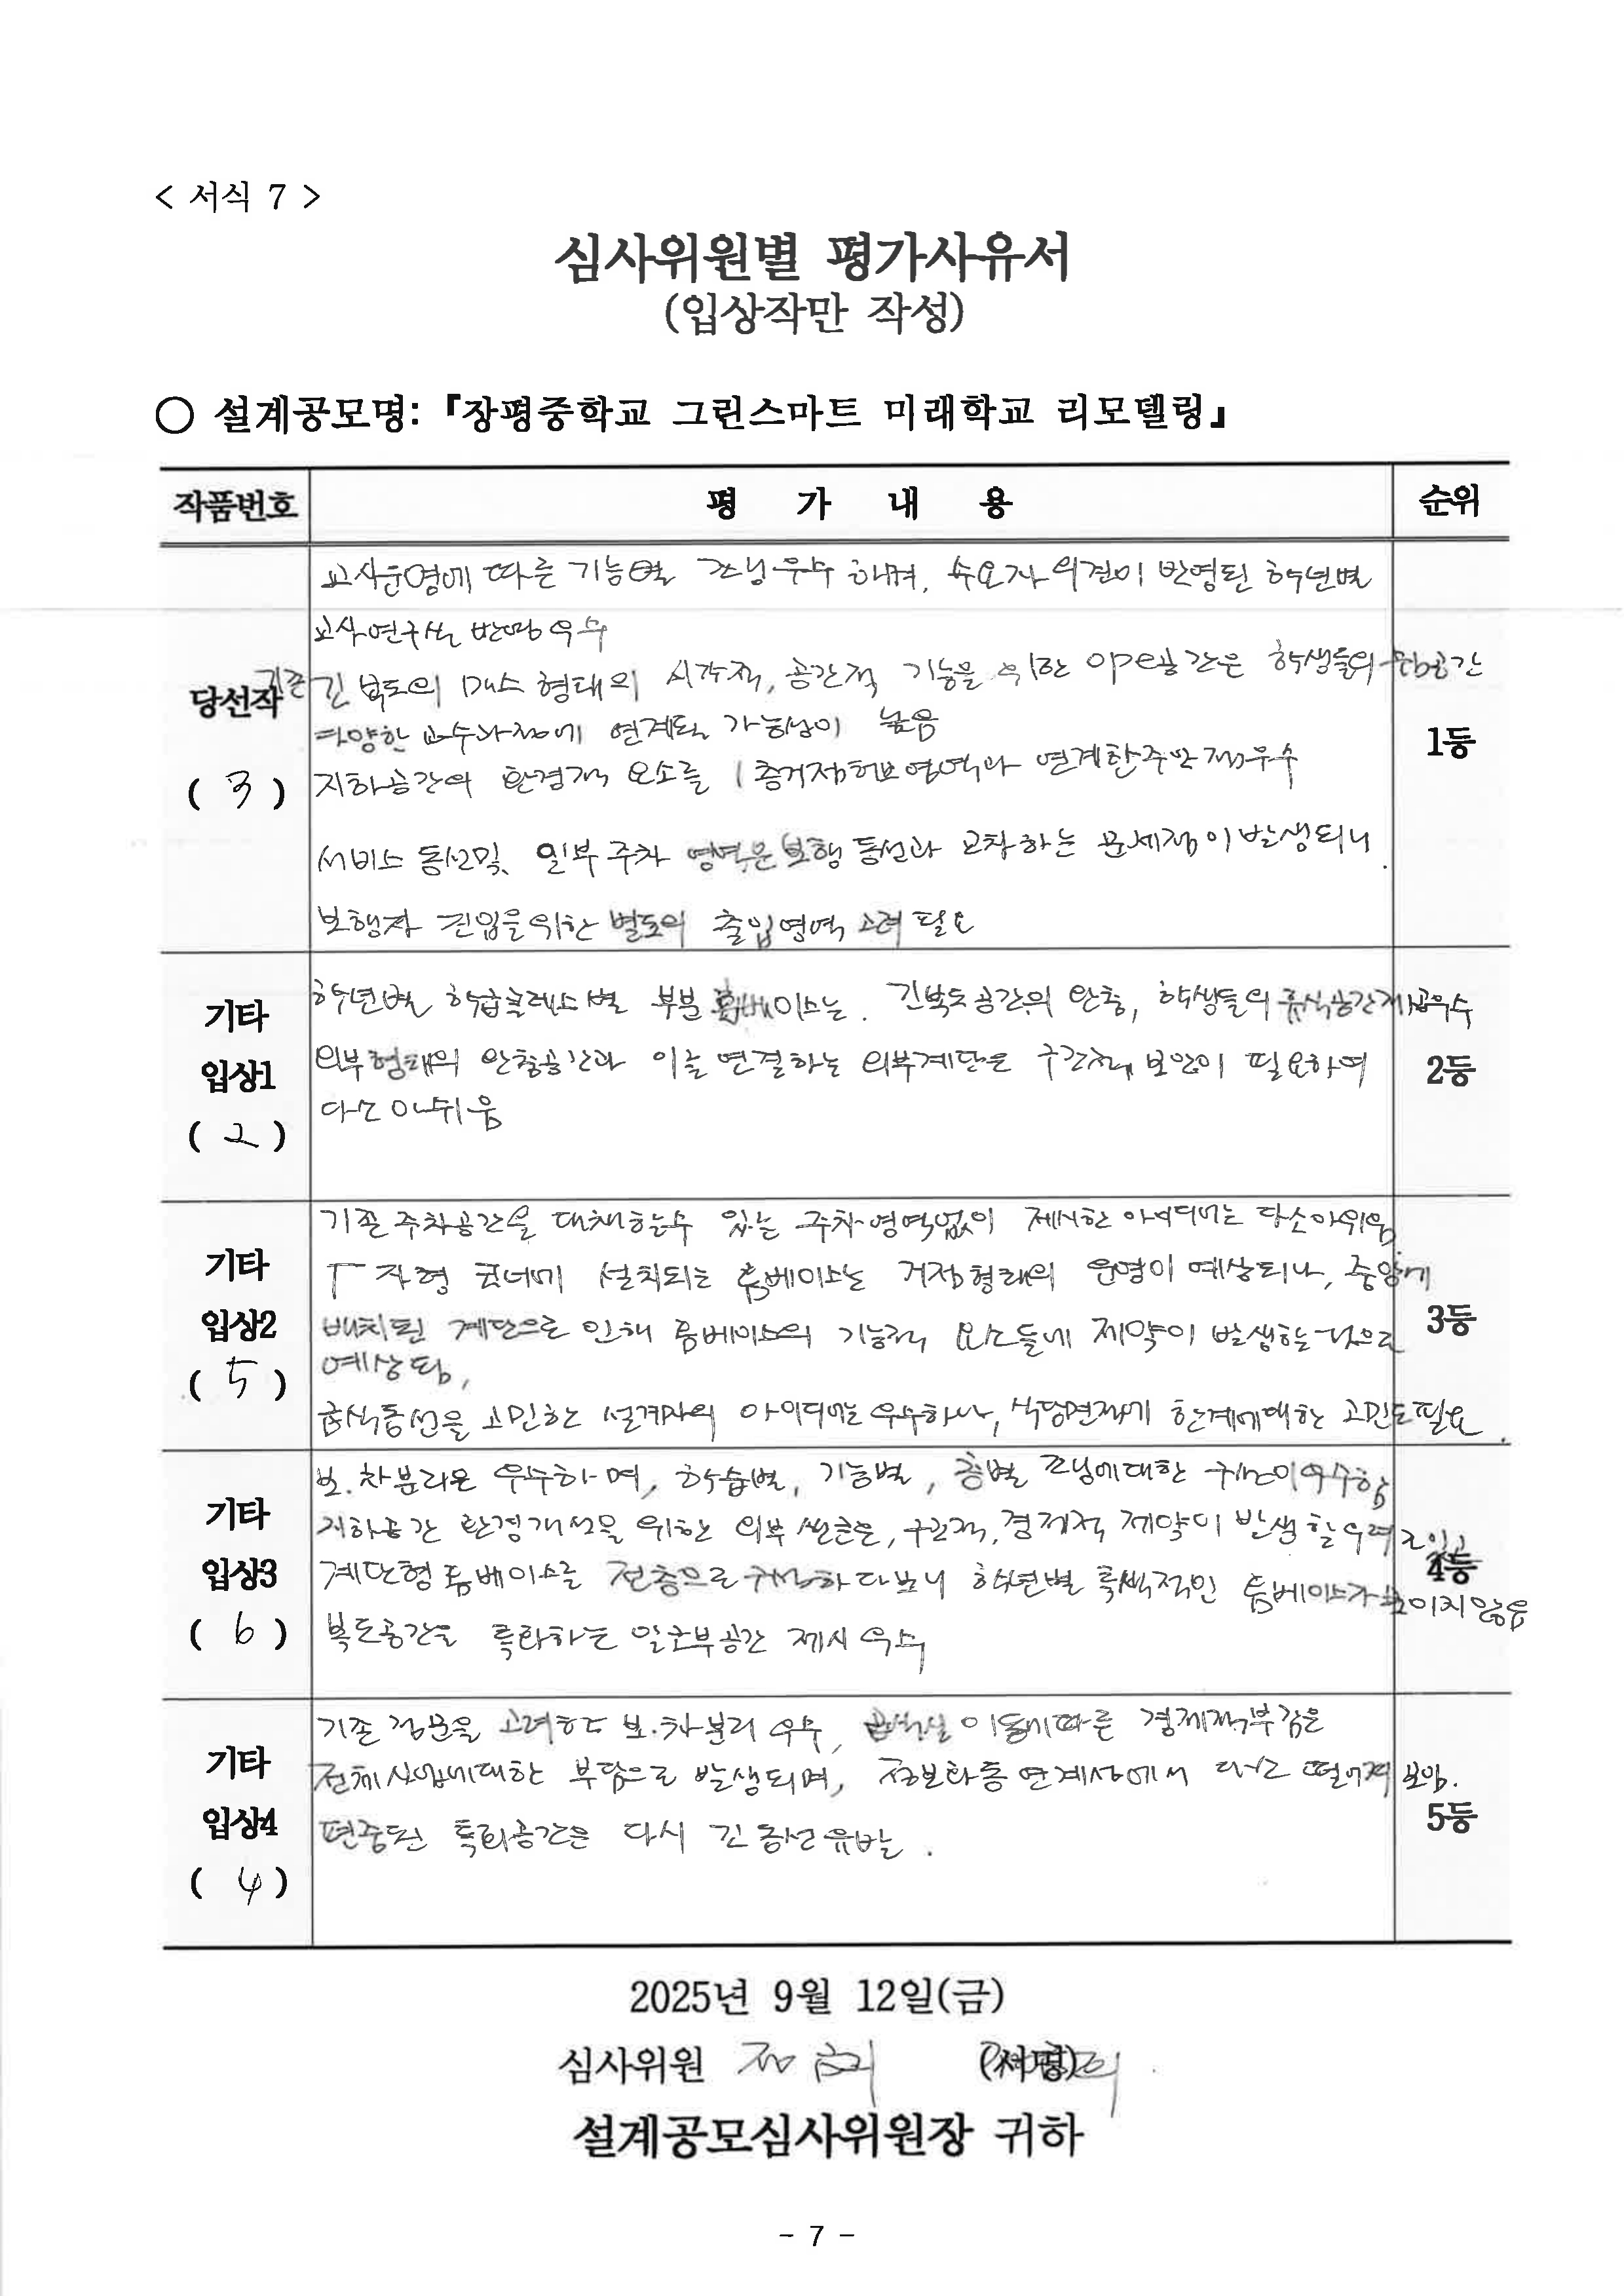 < 서식 7 >
심사위원별 평가사유서
(입상작만 작성)
○ 설계공모명:『장평중학교 그린스마트 미래학교 리모델링』
작품번호 평 가 내 용 순위
교사운영에 따른 기능별 조닝 우수 하며, 수요자 의견이 반영된 학년별
교사연구실 반영 우수
기존 긴 복도의 매스 형태의 시각적, 공간적 기능을 위한 open공간은 학생들의 공간
다양한 교수과정에 연계될 가능성이 높음
지하공간의 환경적 요소를 1층거점허브영역과 연계한 주안점 우수
서비스 동선및 일부 주차 영역은 보행 동선과 교차하는 문제점이 발생되니
보행자 진입을위한 별도의 출입영역 고려 필요
당선작
( 3 )
1등
학년별 학급클래스별 부분 홈베이스는. 긴복도공간의 완충, 학생들의 휴식공간제공우수
외부형태의 완충공간과 이를 연결하는 외부계단은 구간적 보완이 필요하여
다소 아쉬움
기타
입상1
( 2 )
2등
기존 주차공간을 대체할수 있는 주차영역없이 제시한 아이디어는 다소아쉬움
ㅜ 자형 코너에 설치되는 홈베이스는 거점형태의 운영이 예상되나, 중앙에
배치된 계단으로 인해 홈베이스의 기능적 요소들에 제약이 발생하는것으로
예상됨,
급식동선을 고민한 설계자의 아이디어는 우수하나, 식당면적의 한계에대한 고민도필요.
기타
입상2
( 5 )
3등
보.차분리은 우수하며, 학습별, 기능별, 층별 조닝에대한 구성이우수함
지하공간 환경개선을 위한 외부 썬큰은, 구조적, 경제적 제약이 발생 할 우려 있고
계단형 홈베이스를 전층으로 구성하다보니 학년별 특색적인 홈베이스가 보이지않음
복도공간을 특화하는 알코브공간 제시 우수
기타
입상3
( 6 )
4등
기존 정문을 고려한 보.차분리 우수, 급식실 이동에따른 경제적부담은
전체사업에대한 부담으로 발생되며, 정보화동 연계상에서 다소 떨어져 보임.
편중된 특화공간은 다시 긴 동선 유발.
기타
입상4
( 4 )
5등
2025년 9월 12일(금)
심사위원 (서명)
설계공모심사위원장 귀하
- 7 -